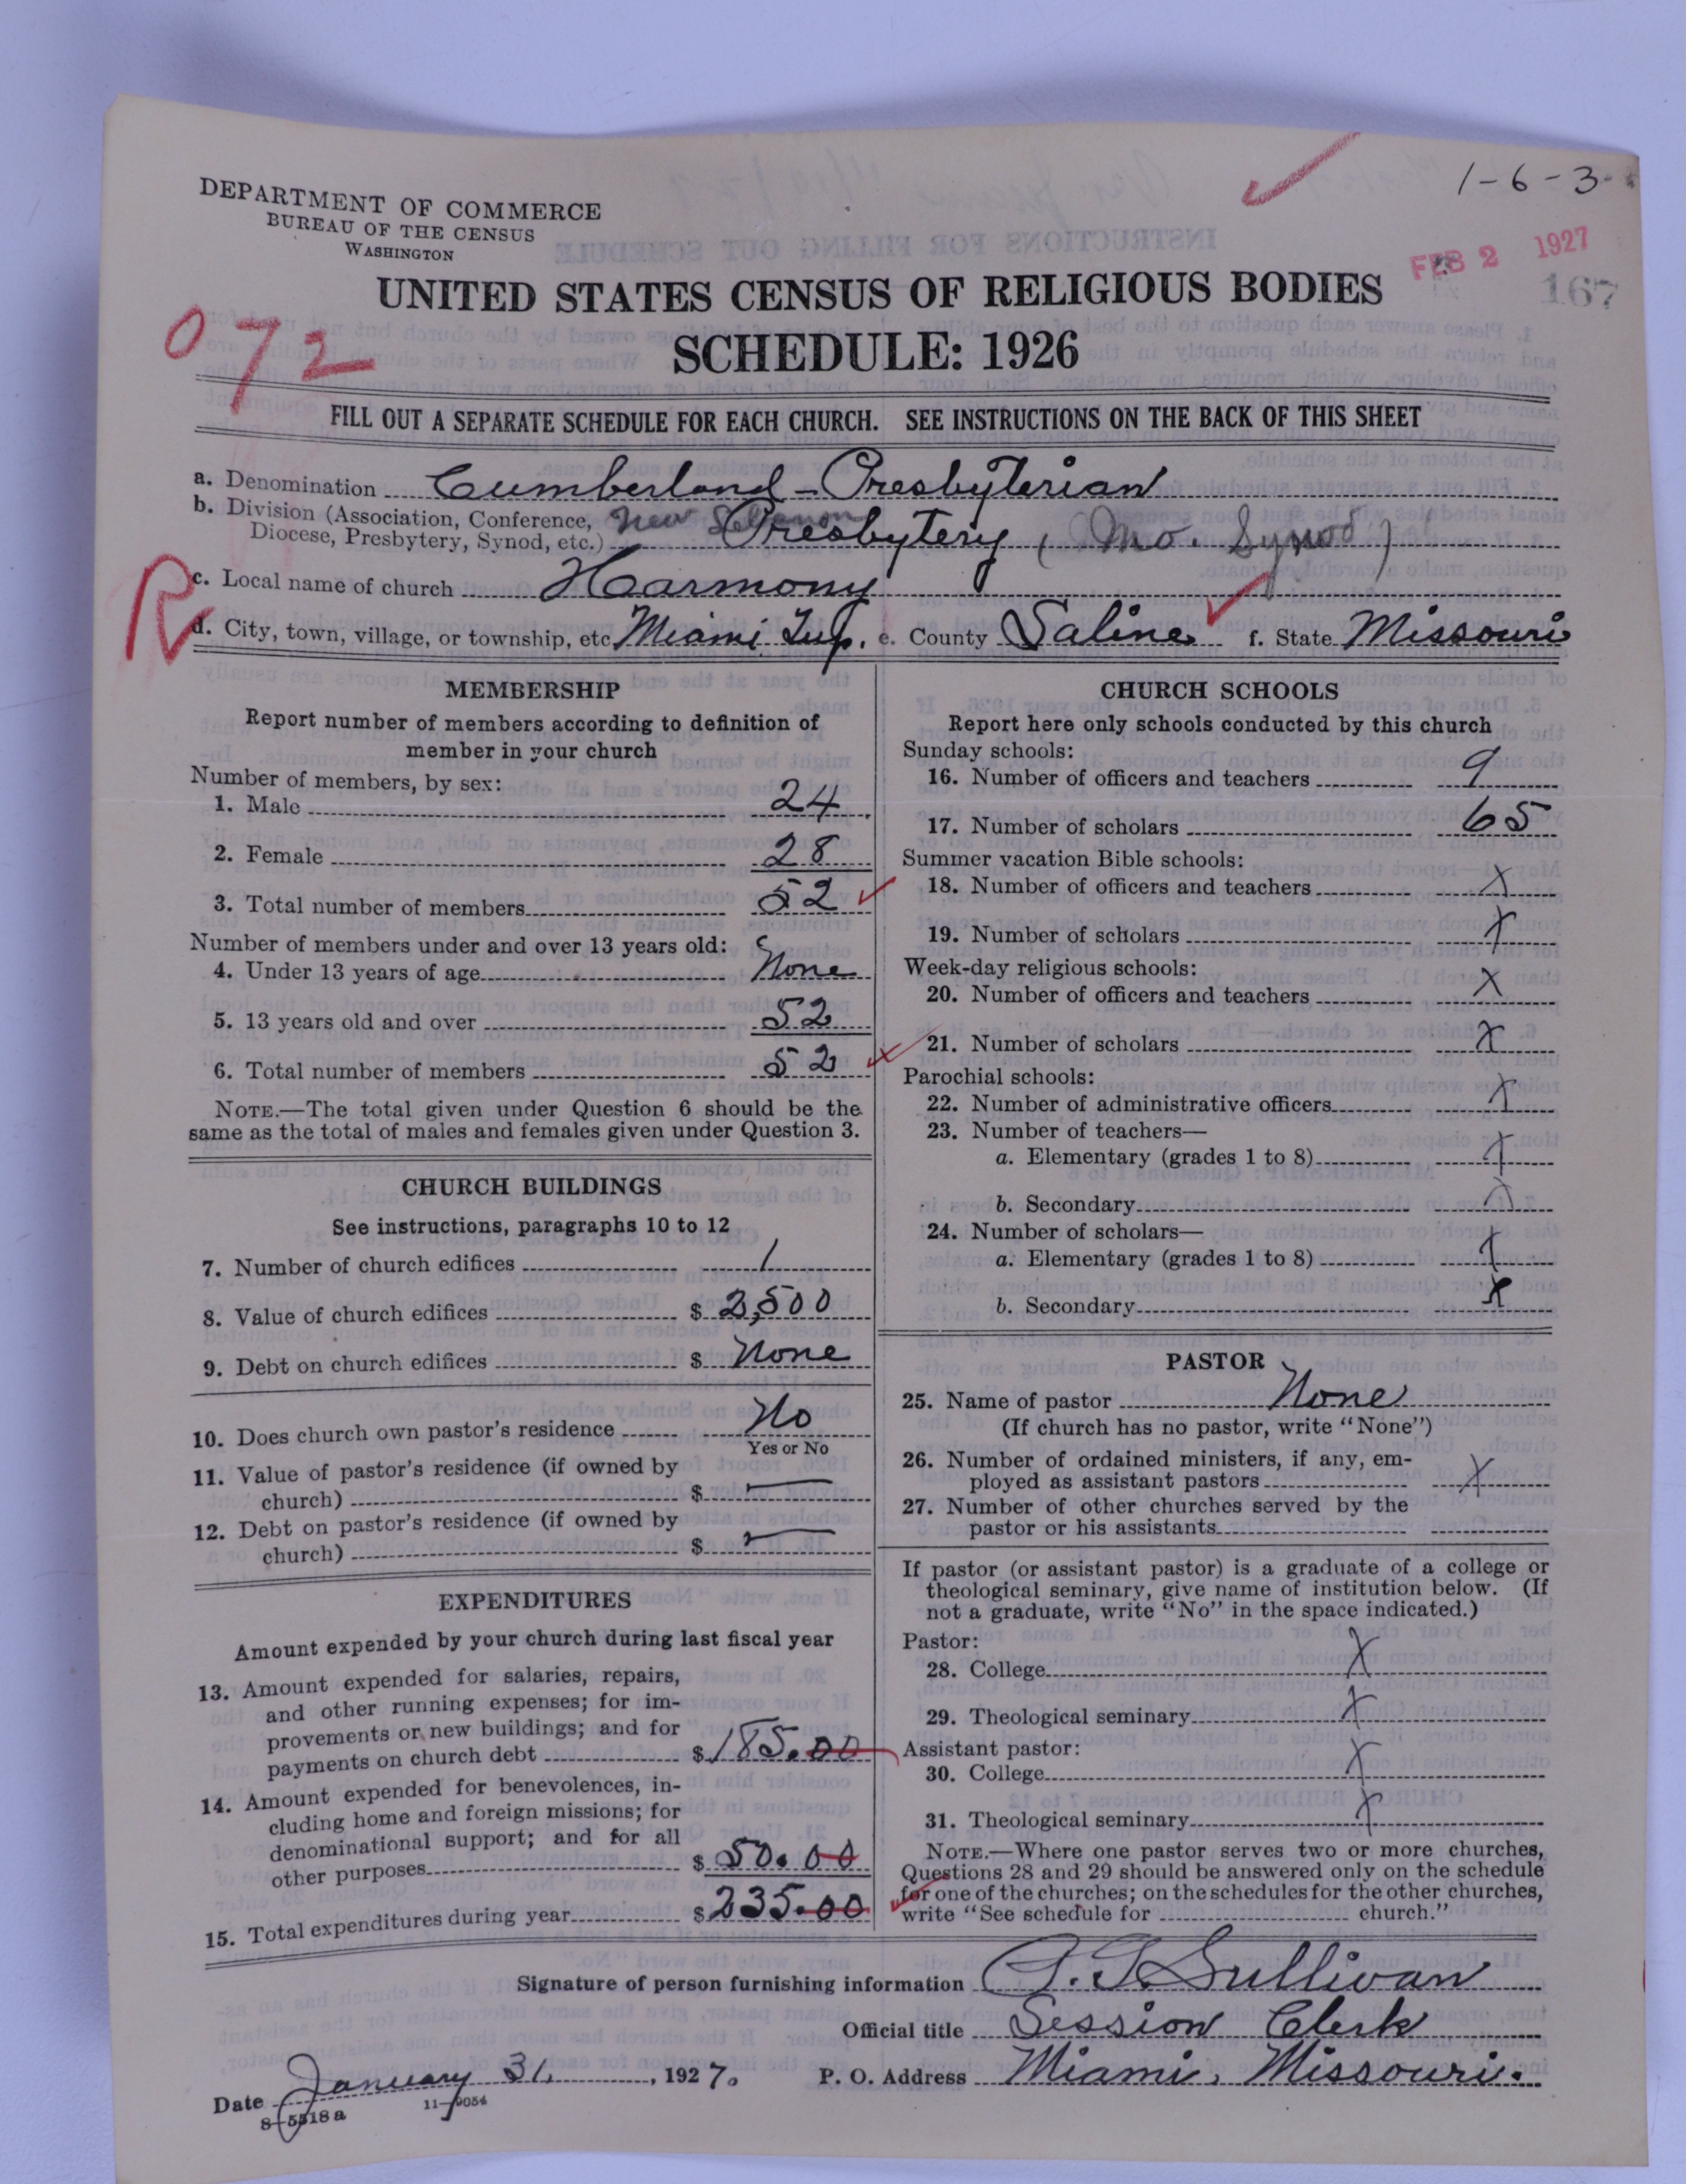 1-6-3
DEPARTMENT OF COMMERCE
BUREAU OF THE CENSUS
WASHINGTON
FEB 2 1927
167
UNITED STATES CENSUS OF RELIGIOUS BODIES
SCHEDULE: 1926
072
FILL OUT A SEPARATE SCHEDULE FOR EACH CHURCH. SEE INSTRUCTIONS ON THE BACK OF THIS SHEET
a. Denomination Cumberland-Presbyterian
b. Division (Association, Conference, New Lebanon
Diocese, Presbytery, Synod, etc.) Presbytery (Mo. Synod)
R
c. Local name of church Harmony
d. City, town, village, or township, etc Miami Twp. e. County Saline f. State Missouri
MEMBERSHIP
Report number of members according to definition of
member in your church
Number of members, by sex:
1. Male 24
2. Female 28
3. Total number of members 52
Number of members under and over 13 years old:
4. Under 13 years of age None
5. 13 years old and over 52
6. Total number of members 52
NOTE.—The total given under Question 6 should be the
same as the total of males and females given under Question 3.
CHURCH BUILDINGS
See instructions, paragraphs 10 to 12
7. Number of church edifices 1
8. Value of church edifices $ 2,500
9. Debt on church edifices $ None
10. Does church own pastor's residence No
Yes or No
11. Value of pastor's residence (if owned by
church) $ —
12. Debt on pastor's residence (if owned by
church) $ —
EXPENDITURES
Amount expended by your church during last fiscal year
13. Amount expended for salaries, repairs,
and other running expenses; for im-
provements or new buildings; and for
payments on church debt $ 185.00
14. Amount expended for benevolences, in-
cluding home and foreign missions; for
denominational support; and for all
other purposes $ 50.00
15. Total expenditures during year $ 235.00
CHURCH SCHOOLS
Report here only schools conducted by this church
Sunday schools:
16. Number of officers and teachers 9
17. Number of scholars 65
Summer vacation Bible schools:
18. Number of officers and teachers X
19. Number of scholars X
Week-day religious schools:
20. Number of officers and teachers X
21. Number of scholars X
Parochial schools:
22. Number of administrative officers X
23. Number of teachers—
a. Elementary (grades 1 to 8) X
b. Secondary X
24. Number of scholars—
a. Elementary (grades 1 to 8) X
b. Secondary X
PASTOR
25. Name of pastor None
(If church has no pastor, write "None")
26. Number of ordained ministers, if any, em-
ployed as assistant pastors X
27. Number of other churches served by the
pastor or his assistants
If pastor (or assistant pastor) is a graduate of a college or
theological seminary, give name of institution below. (If
not a graduate, write "No" in the space indicated.)
Pastor:
28. College X
29. Theological seminary X
Assistant pastor:
30. College X
31. Theological seminary X
NOTE.—Where one pastor serves two or more churches,
Questions 28 and 29 should be answered only on the schedule
for one of the churches; on the schedules for the other churches,
write "See schedule for church."
Signature of person furnishing information Sullivan
Official title Session Clerk
Date January 31, 1927. P. O. Address Miami, Missouri.
8-5518a 11-9054